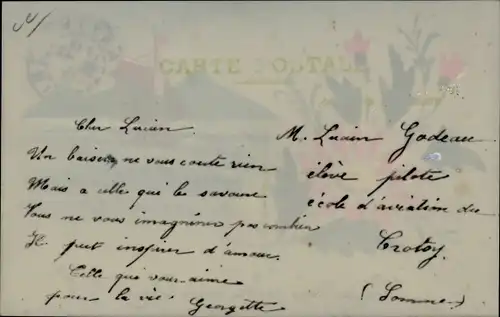 CARTE POSTALE
Cher Lucien
Un baiser ne vous coute rien
Mais a celle qui le savoure
Vous ne vous imaginez pas combien
Il peut inspirer d'amour
Celle qui vous aime
pour la vie
Georgette
M. Lucien Godeau
élève pilote
école d'aviation du
Crotoy
(Somme)